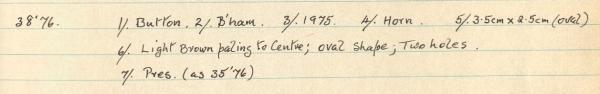 38'76. 1/. Button. 2/. B'ham. 3/. 1975. 4/. Horn. 5/. 3·5cm x 2·5cm (oval)
6/. Light Brown paling to Centre; oval shape; Two holes.
7/. Pres. (as 35'76)